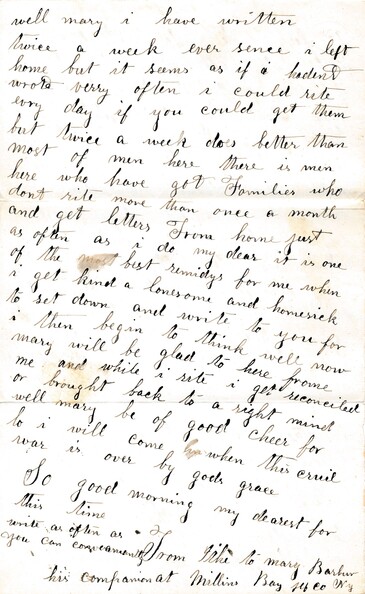 well mary i have written
twice a week ever sence i left
home but it seems as if i hadent
wrote verry often i could rite
evry day if you could get them
but twice a week does better than
most of men here there is men
here who have got Families who
dont rite more than once a month
and get letters From home just
as often as i do my dear it is one
of the most best remidys for me when
i get kind a lonesome and homesick
to set down and write to you for
i then begin to think well now
mary will be glad to here frome
me and while i rite i get reconciled
or brought back to a right mind
well mary be of good cheer for
lo i will come when this cruil
war is over by gods grace
So good morning my dearest for
this time
write as often as
you can conveanantly
From Ike to mary Barbur
his companion at Millins Bay Jef co NY